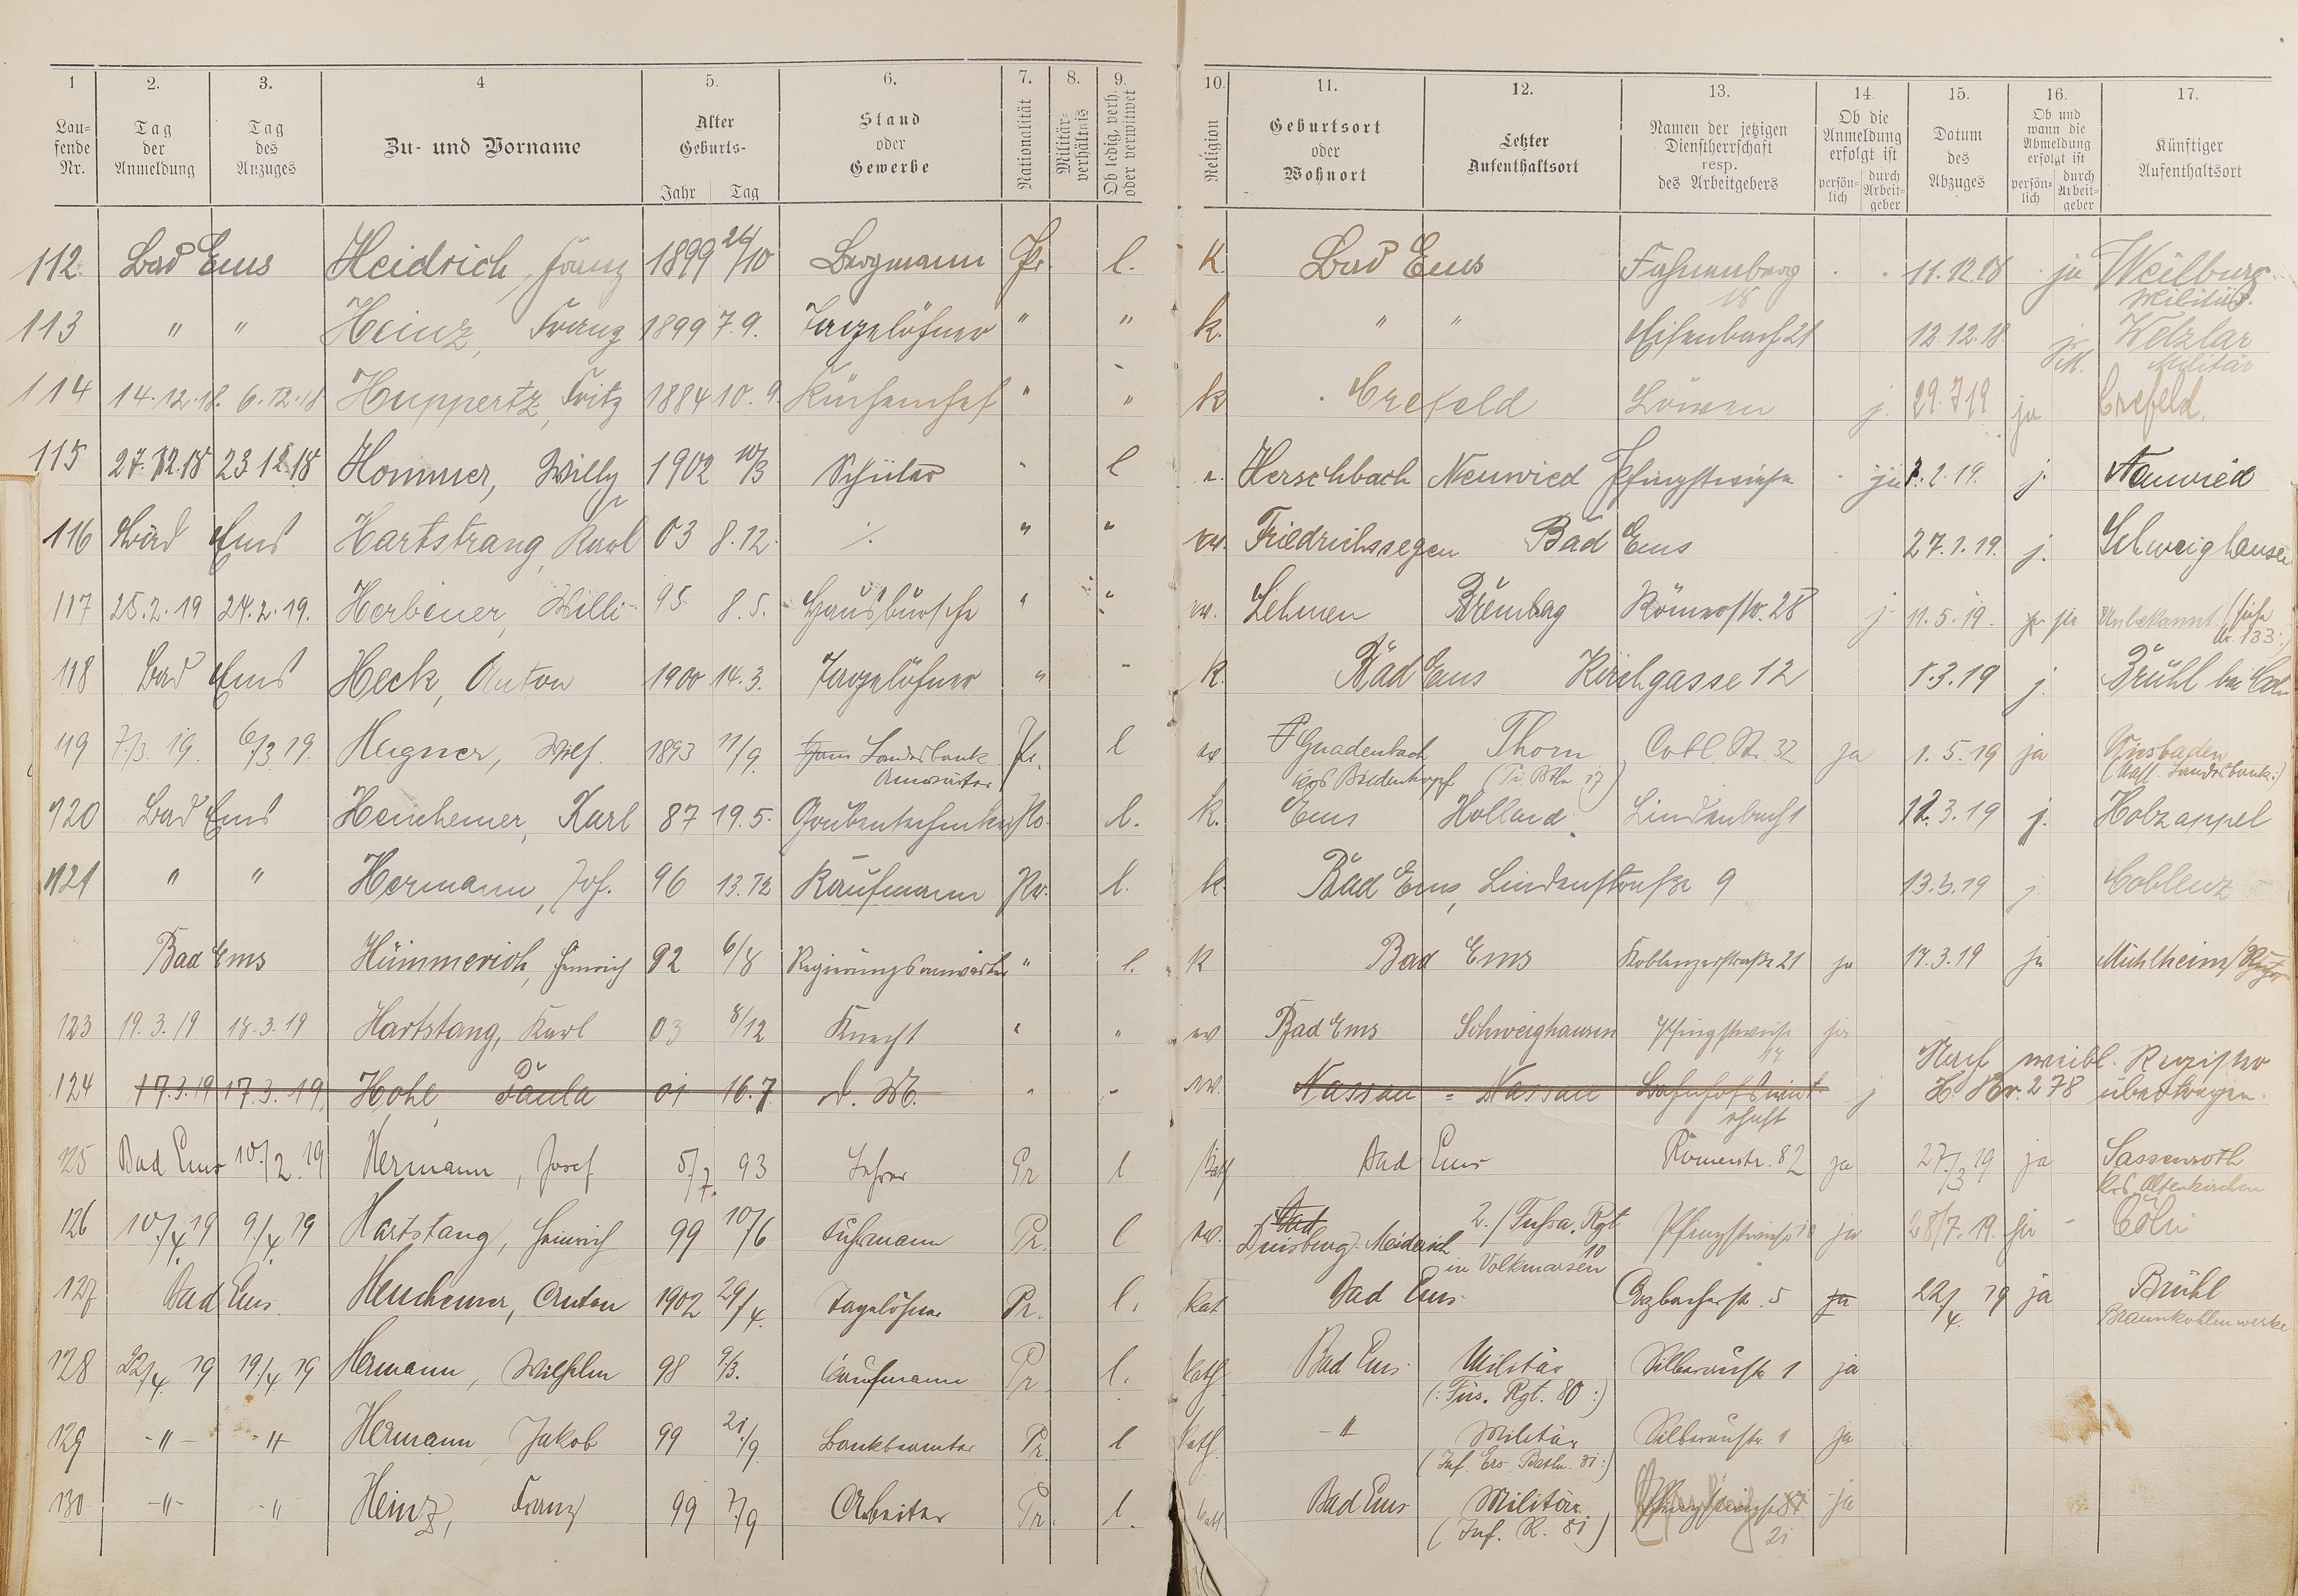 1 2. 3. 4 5. 6. 7. 8. 9. 10. 11. 12. 13. 14. 15. 16. 17.
Lau-fende Nr. Tag der Anmeldung Tag des Anzuges Zu- und Vorname Alter Geburts- Jahr Tag Stand oder Gewerbe Nationalität Militär-verhältnis Ob ledig, verh. oder verwitwet Religion Geburtsort oder Wohnort Letzter Aufenthaltsort Namen der jetzigen Dienstherrschaft resp. des Arbeitgebers Ob die Anmeldung erfolgt ist persön-lich durch Arbeit-geber Datum des Abzuges Ob und wann die Abmeldung erfolgt ist persön-lich durch Arbeit-geber Künftiger Aufenthaltsort
112 Bad Ems Heidrich, Franz 1899 26/10 Bergmann Pr. l. K. Bad Ems Fahnenberg 11.12.18 ja Weilburg
Militär.
113 " " Heinz, Franz 1899 7.9. Tagelöhner " " k. " " Eisenbach 21 12.12.18 Wetzlar
Militär
114 14.12.18. 6.12.18 Huppertz, Fritz 1884 10.9. Küchenchef " " k Crefeld Löwen j. 29.7.19 ja Crefeld.
115 27.12.18 23.12.18 Hommer, Willy 1902 10/3 Schüler " l Herschbach Neuwied Pfingstwiese ja 2.19. j. Neuwied
116 Bad Ems Hartstrang, Karl 03 8.12. ./. " " ev. Friedrichssegen Bad Ems 27.1.19. j. Schweighausen
117 25.2.19 24.2.19. Herbener, Willi 95 8.5. Hausbursche " " ev. Lehmen Römerstr. 28 j. 11.5.19. ja Unbekannt (siehe
Nr. 133:)
118 Bad Ems Heck, Anton 1900 14.3. Tagelöhner " " k. Bad Ems Kirchgasse 12 1.3.19 j. Brühl bei Cöln
119 7/3. 19. 6/3 19. Hegner, Wilh. 1893 11/9. Landesbank Pr. l ev Gnadenbach Thorn Cobl. Str. 32 ja 1.5.19 ja Wiesbaden
Anwärter (Nass. Landesbank:)
120 Bad Ems Heuchemer, Karl 87 19.5. Grubentechniker Pr. l. k. Ems Holland Lindenbach 12.3.19 j. Holzappel
121 " " Hermann, Jos. 96 13.12 Kaufmann Pr. l. k. Bad Ems, Lindenstraße 9 13.3.19 j Coblenz
Bad Ems Hümmerich, Heinrich 92 6/8 Regierungsanwärter " l. K Bad Ems Koblenzerstraße 21 ja 17.3.19 ja Mühlheim/Ruhr
123 19.3.19 18.3.19 Hartstang, Karl 03 8/12 Knecht " " ev Bad Ems Schweighausen Pfingstwiese ja
Nach weibl. Register
124 17.3.19 17.3.19. Hohl, Paula 01 16.7. d. M. " " ev. Nassau = Nassau Bahnhofswirt-schaft j H. Nr. 278 übertragen.
125 Bad Ems 10./2. 19 Hermann, Josef 5/7. 93 Lehrer Pr l Kath Bad Ems Römerstr. 82 ja 27./3 19 ja Sassenroth
Krs. Altenkirchen
126 10./4. 19 9./4. 19 Hartstang, Heinrich 99 10/6 Fuhrmann Pr. l ev. Bad Duisburg-Meiderich 2./Fussa. Rgt. 10 in Volkmarsen Pfingstwiese 10 ja 28/7. 19. ja Cöln
127 Bad Ems. Heuchemer, Anton 1902 29/4. Tagelöhner Pr. l. kat Bad Ems. Arzbacherstr. 5 ja 22/4. 19 ja Brühl
Braunkohlenwerke
128 22/4. 19 19/4 19 Hermann, Wilhelm 98 9/3. Kaufmann Pr. l. kath. Bad Ems. Militär Silberaustr. 1 ja
(: Füs. Rgt. 80 :)
129 -"- -"- Hermann, Jakob 99 21./9. Bankbeamter Pr. l kath. -"- Militär Silberaustr. 1 ja
(Inf. Ers. Batln. 81:)
130 -"- -"- Heinz, Franz 99 7./9 Arbeiter Pr. l. kath. Bad Ems Militär ja
(Inf. R. 81) 21